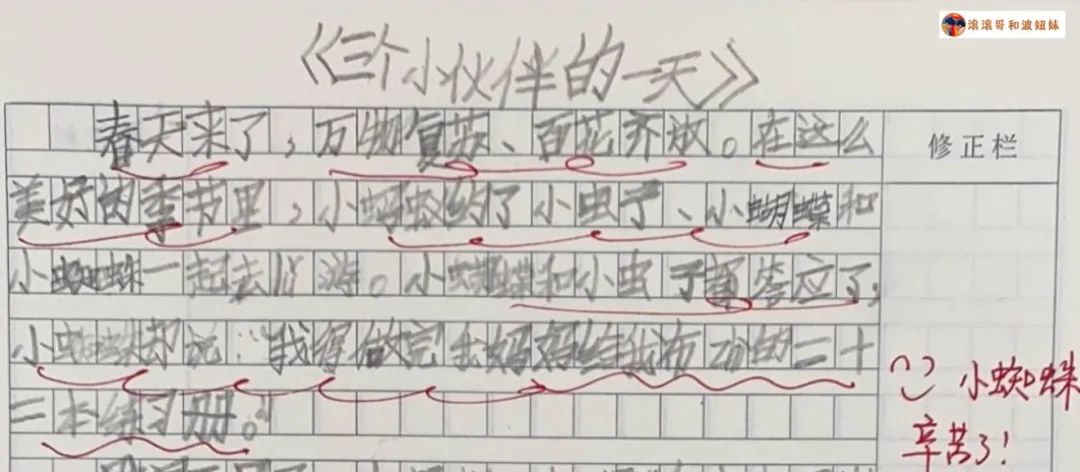 滚滚哥和波妞妹
《三个小伙伴的一天》
春天来了,万物复苏、百花齐放。在这么
修正栏
美好的季节里,小蚂蚁约了小虫子、小蝴蝶和
小蜘蛛一起去川游。小蝴蝶和小虫子都答应了,
小蜘蛛却说:“我得做完我妈妈给我布力的二十
二本练习册。”
小蜘蛛
辛苦了!